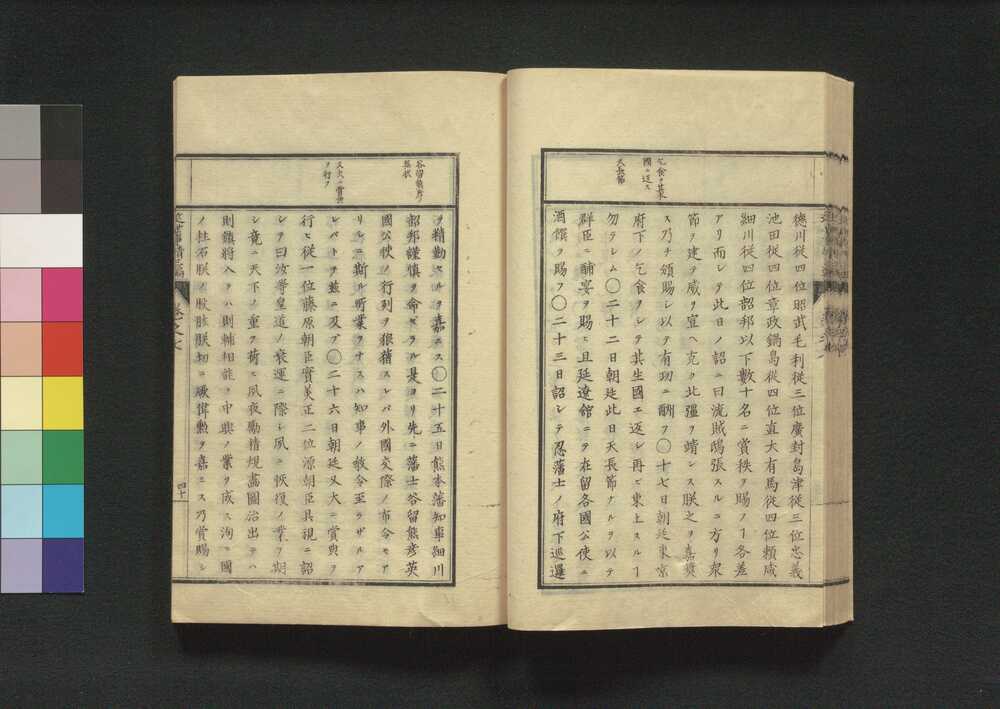 乞食ヲ其
國ニ返ス
天長節
德川從四位昭武毛利從三位廣封島津從三位忠義
池田從四位章政鍋島從四位直大有馬從四位賴咸
細川從四位韶邦以下數十名ニ賞秩ヲ賜フヿ各差
アリ而シテ此日ノ詔ニ曰流賊鴟張スルニ方リ衆
節ヲ建テ威ヲ宣ヘ克ク北彊ヲ靖シス朕之ヲ嘉奬
ス乃チ頒賜シ以テ有功ニ酬フ〇十七日朝廷東京
府下ノ乞食ヲシテ其生國エ返シ再ヒ東上スルヿ
勿ラシム〇二十二日朝廷此日天長節ナルヲ以テ
群臣ニ酺宴ヲ賜ヒ且延遼館ニテ在留各國公使ニ
酒饌ヲ賜フ〇二十三日詔シテ忍藩士ノ府下巡邏
谷留熊彦ノ
又大ニ賞典
ヲ行フ
ヲ精勤セルヲ嘉ニス〇二十五日熊本藩知事細川
韶邦謹愼ヲ命セラル是ヨリ先ニ藩士谷留熊彦英
國公使ノ行列ヲ狼藉スレバ外國交際ノ布令モア
リシニ斯ル所業ヲナスハ知事ノ敎令至ラザルア
レバトヲ玆ニ及ブ〇二十六日朝廷又大ニ賞典ヲ
行ヒ從一位藤原朝臣實美正二位源朝臣具視ニ詔
シテ曰汝等皇道ノ衰運ニ際シ夙ニ恢復ノ業ヲ期
シ竟ニ天下ノ重ヲ荷ヒ夙夜勵精規畫圖治出テハ
則鎭將入テハ則輔相能ク中興ノ業ヲ成ス洵ニ國
ノ柱石朕ノ股肱朕切ニ厥偉勳ヲ嘉ニス乃賞賜シ
四十